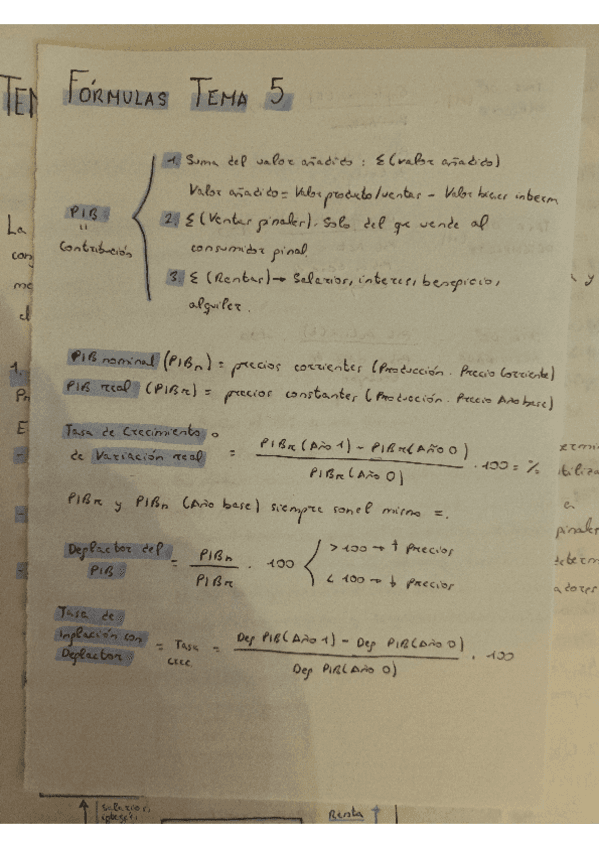 FÓRMULAS TEMA 5
1. Suma del valor añadido: Σ(valor añadido)
Valor añadido = Valor producto/ventas - Valor bienes interm
PIB = Contribución
2. Σ(Ventas finales). Solo del que vende al
consumidor final.
3. Σ(Rentas) → Salarios, interes, beneficio,
alquiler.
PIB nominal (PIBn) = precios corrientes (Producción · Precio Corriente)
PIB real (PIBr) = precios constantes (Producción · Precio Año base)
Tasa de Crecimiento o
de Variación real = PIBr (Año 1) - PIBr (Año 0) / PIBr (Año 0) · 100 = %
PIBr y PIBn (Año base) siempre son el mismo =.
Deflactor del PIB = PIBn / PIBr · 100
> 100 → ↑ Precios
< 100 → ↓ Precios
Tasa de
inflación con
Deflactor = Tasa crec. = Def PIB (Año 1) - Def PIB (Año 0) / Def PIB (Año 0) · 100
Salarios,
Renta ↑